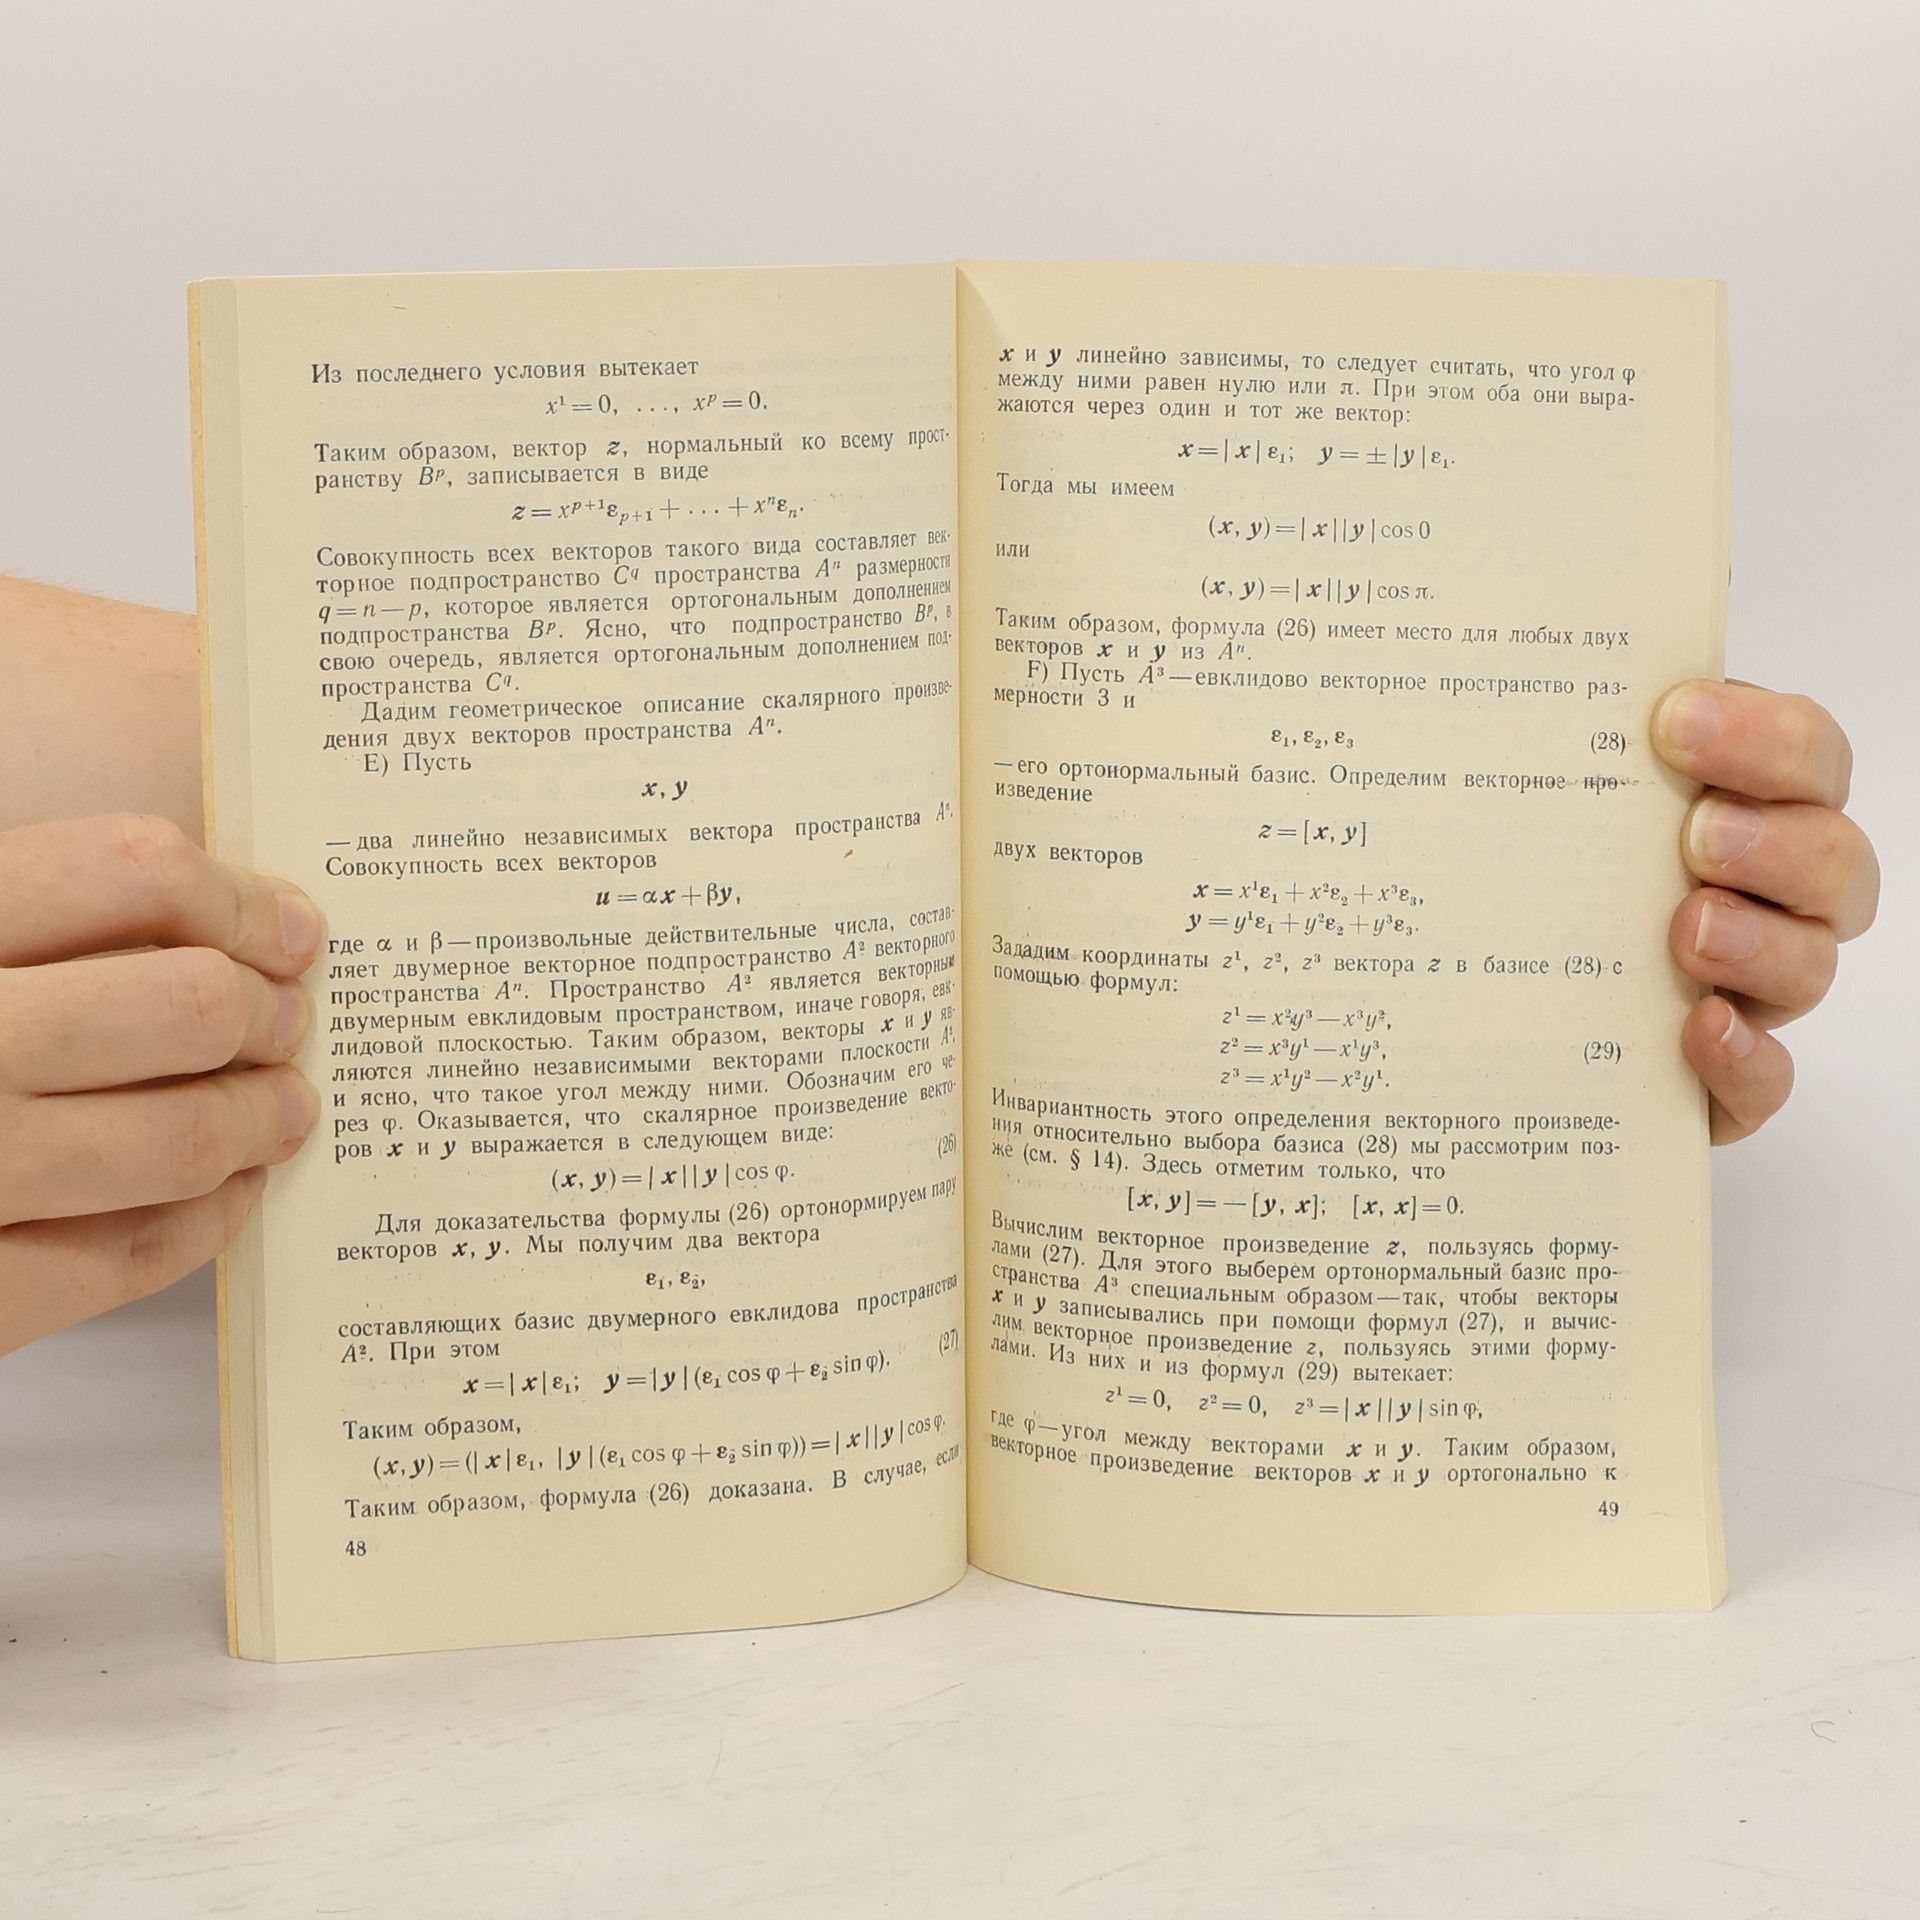 Из последнего условия вытекает
x¹ = 0, ..., xᵖ = 0.
Таким образом, вектор z, нормальный ко всему прост-
ранству Bᵖ, записывается в виде
z = xᵖ⁺¹ε_{p+1} + ... + xⁿεₙ.
Совокупность всех векторов такого вида составляет век-
торное подпространство C^q пространства Aⁿ размерности
q = n — p, которое является ортогональным дополнением
подпространства Bᵖ. Ясно, что подпространство Bᵖ, в
свою очередь, является ортогональным дополнением под-
пространства C^q.
Дадим геометрическое описание скалярного произве-
дения двух векторов пространства Aⁿ.
E) Пусть
x, y
— два линейно независимых вектора пространства Aⁿ.
Совокупность всех векторов
u = αx + βy,
где α и β — произвольные действительные числа, состав-
ляет двумерное векторное подпространство A² векторного
пространства Aⁿ. Пространство A² является векторным
двумерным евклидовым пространством, иначе говоря, евк-
лидовой плоскостью. Таким образом, векторы x и y яв-
ляются линейно независимыми векторами плоскости A²,
и ясно, что такое угол между ними. Обозначим его че-
рез φ. Оказывается, что скалярное произведение векто-
ров x и y выражается в следующем виде:
(x, y) = | x | | y | cos φ. (26)
Для доказательства формулы (26) ортонормируем пару
векторов x, y. Мы получим два вектора
ε₁, ε₂,
составляющих базис двумерного евклидова пространства
A². При этом
x = | x | ε₁; y = | y | (ε₁ cos φ + ε₂ sin φ). (27)
Таким образом,
(x, y) = (| x | ε₁, | y | (ε₁ cos φ + ε₂ sin φ)) = | x | | y | cos φ.
Таким образом, формула (26) доказана. В случае, если
48
x и y линейно зависимы, то следует считать, что угол φ
между ними равен нулю или π. При этом оба они выра-
жаются через один и тот же вектор:
x = | x | ε₁; y = ± | y | ε₁.
Тогда мы имеем
(x, y) = | x | | y | cos 0
или
(x, y) = | x | | y | cos π.
Таким образом, формула (26) имеет место для любых двух
векторов x и y из Aⁿ.
F) Пусть A³ — евклидово векторное пространство раз-
мерности 3 и
ε₁, ε₂, ε₃ (28)
— его ортонормальный базис. Определим векторное про-
изведение
z = [x, y]
двух векторов
x = x¹ε₁ + x²ε₂ + x³ε₃,
y = y¹ε₁ + y²ε₂ + y³ε₃.
Зададим координаты z¹, z², z³ вектора z в базисе (28) с
помощью формул:
z¹ = x²y³ — x³y²,
z² = x³y¹ — x¹y³, (29)
z³ = x¹y² — x²y¹.
Инвариантность этого определения векторного произведе-
ния относительно выбора базиса (28) мы рассмотрим поз-
же (см. § 14). Здесь отметим только, что
[x, y] = — [y, x]; [x, x] = 0.
Вычислим векторное произведение z, пользуясь форму-
лами (27). Для этого выберем ортонормальный базис про-
странства A³ специальным образом — так, чтобы векторы
x и y записывались при помощи формул (27), и вычис-
лим векторное произведение z, пользуясь этими форму-
лами. Из них и из формул (29) вытекает:
z¹ = 0, z² = 0, z³ = | x | | y | sin φ,
где φ — угол между векторами x и y. Таким образом,
векторное произведение векторов x и y ортогонально к
49